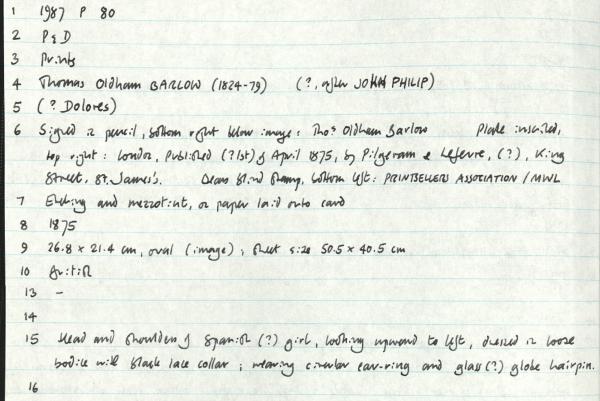 1 1987 P 80
2 P & D
3 Prints
4 Thomas Oldham BARLOW (1824-79) (?, after JOHN PHILIP)
5 (? Dolores)
6 Signed in pencil, bottom right below image: Thos Oldham Barlow Plate inscribed,
top right: London, Published (?1st) of April 1875, by Pilgeram & Lefevre, (?), King
Street, St. James's. Bears blind stamp, bottom left: PRINTSELLERS ASSOCIATION / MWL
7 Etching and mezzotint, on paper laid onto card
8 1875
9 26.8 x 21.4 cm, oval (image); sheet size 50.5 x 40.5 cm
10 British
13 -
14
15 Head and shoulders of Spanish (?) girl, looking upward to left, dressed in loose
bodice with black lace collar; wearing circular ear-ring and glass (?) globe hairpin.
16